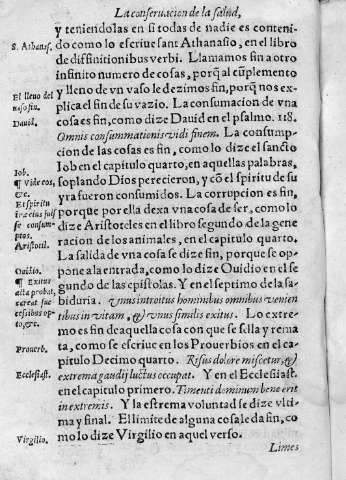 La conseruacion de la salud,
y teniendolas en si todas de nadie es conteni-
do como lo escriue sant Athanasio, en el libro
de diffinitionibus verbi. Llamamos fin a otro
infinito numero de cosas, porq̃ al cũplemento
y lleno de vn vaso le dezimos fin, porq̃ nos ex-
plica el fin de su vazio. La consumacion de vna
cosa es fin, como dize Dauid en el psalmo. 118.
Omnis consummationis vidi finem. La consump-
cion de las cosas es fin, como lo dize el sancto
Iob en el capitulo quarto, en aquellas palabras,
soplando Dios perecieron, y cõ el spiritu de su
yra fueron consumidos. La corrupcion es fin,
porque por ella dexa vna cosa de ser, como lo
dize Aristoteles en el libro segundo de la gene-
racion de los animales, en el capitulo quarto.
La salida de vna cosa se dize fin, porque se op-
pone a la entrada, como lo dize Ouidio en el se-
gundo de las epistolas. Y en el septimo de la sa-
biduria. Vnus introitus hominibus omnibus venien
tibus in vitam, & vnus similis exitus. Lo extre-
mo es fin de aquella cosa con que se sella y rema
ta, como se escriue en los Prouerbios en el ca-
pitulo Decimo quarto. Risus dolore miscetur, &
extrema gaudij luctus occupat. Y en el Ecclesiast.
en el capitulo primero. Timenti dominum bene erit
in extremis. Y la estrema voluntad se dize vlti-
ma y final. El limite de alguna cosa le da fin, co
mo lo dize Virgilio en aquel verso.
Limes
S. Athanas.
El lleno del
vaso fin.
Dauid.
Iob.
¶ Videt eos,
&c. Et
spiritu
iræ eius fuis
se consum-
ptos.
Aristotil.
Ouidio.
¶ Exitus
acta probat,
careat suc
cesibus op-
to, &c.
Prouerb.
Ecclesiast.
Virgilio.